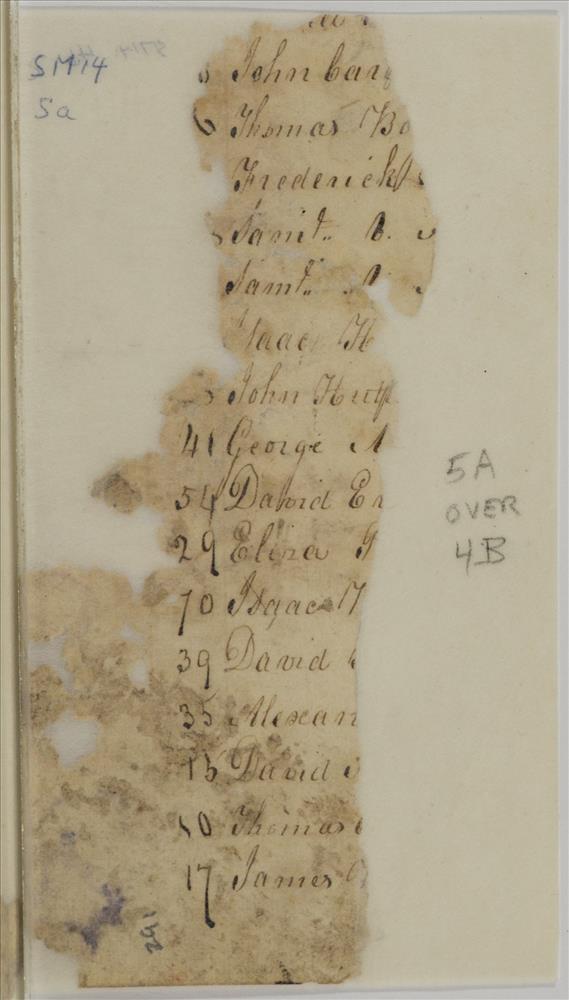 SM14
5a
John Car
6 Thomas Bo
Frederick
Saml. B.
Saml.
Isaac H
John Huf
41 George
54 David E
29 Eliza
70 Isaac
39 David
35 Alexan
15 David
10 Thomas
17 James
291
5A
OVER
4B